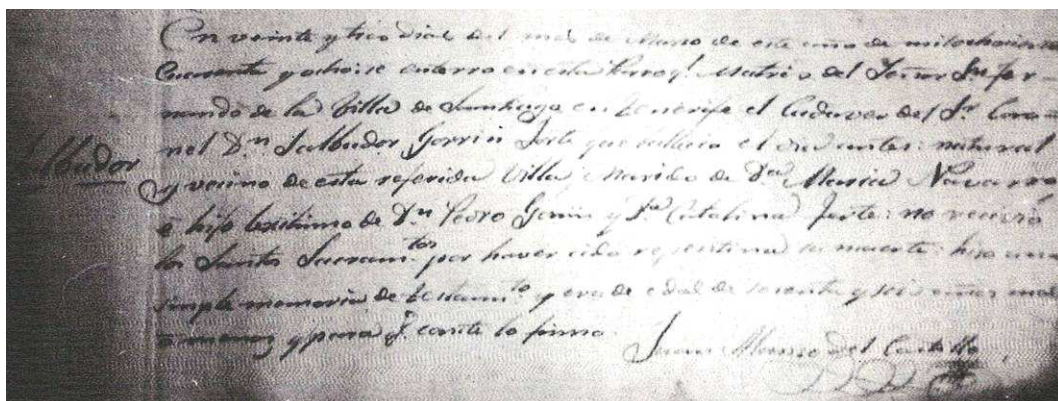 En veinte y tres dias del mes de Marso de este año de mil ochocientos
Cuarenta y ocho: se enterro en esta Parroql. Matris del Señor Sn. Fer-
nando de la Villa de Santiago en Tenerife el Cadaver del Sr. Coro-
nel Dn. Salbador Gorrin Jorte que fallecio el dia antes: natural
Salbador
y vecino de esta referida Villa, Marido de Da. Maria Navarro
é hijo lexitimo de Dn. Pedro Gorrin y Da. Catalina Jorte: no recivió
los Santos Sacramtos. por haver cido repentina su muerte: hiso una
simple memoria de testamto. y era de edad de y seis años mas
o menos y para q. conste lo firmo.
Juan Alonso del Castillo